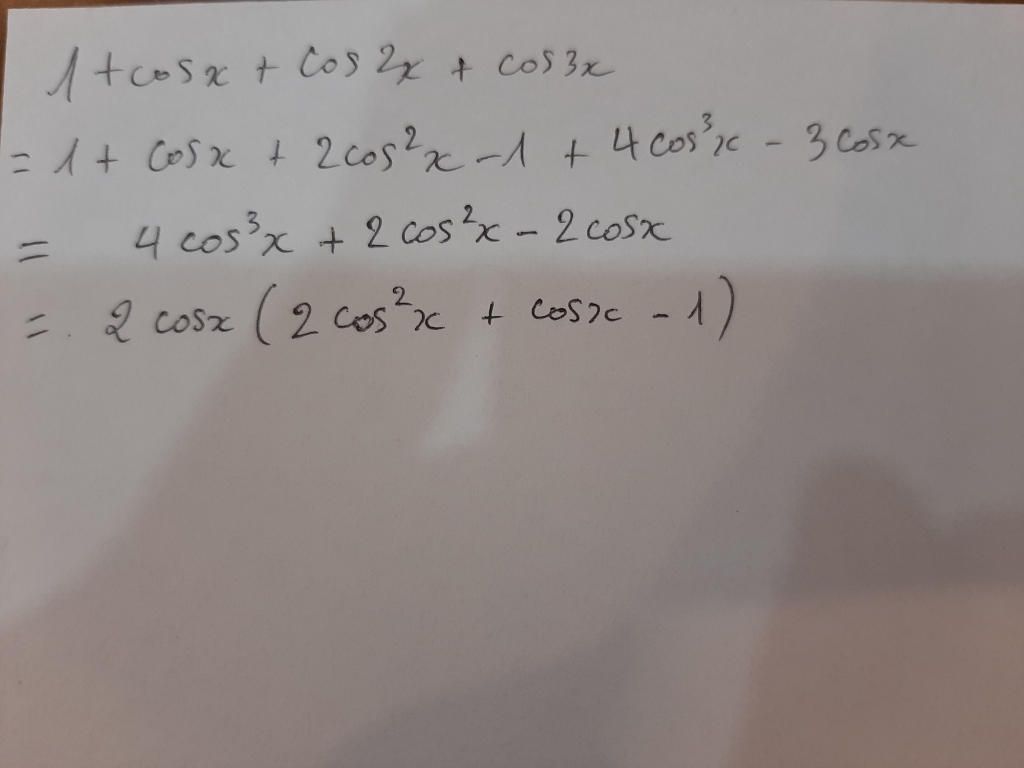 1 + cosx + cos2x + cos3x
= 1 + cosx + 2cos²x - 1 + 4cos³x - 3cosx
= 4cos³x + 2cos²x - 2cosx
=. 2cosx(2cos²x + cosx - 1)